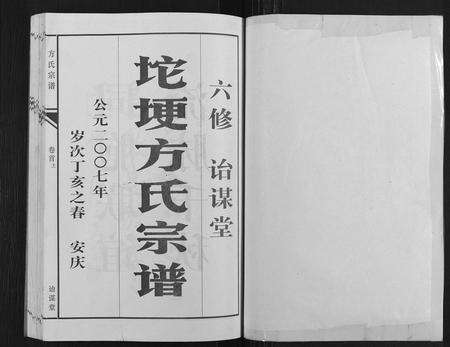 六修 诒谋堂
坨埂方氏宗谱
公元二〇〇七年
岁次丁亥之春 安庆
方氏宗谱
卷首上
诒谋堂